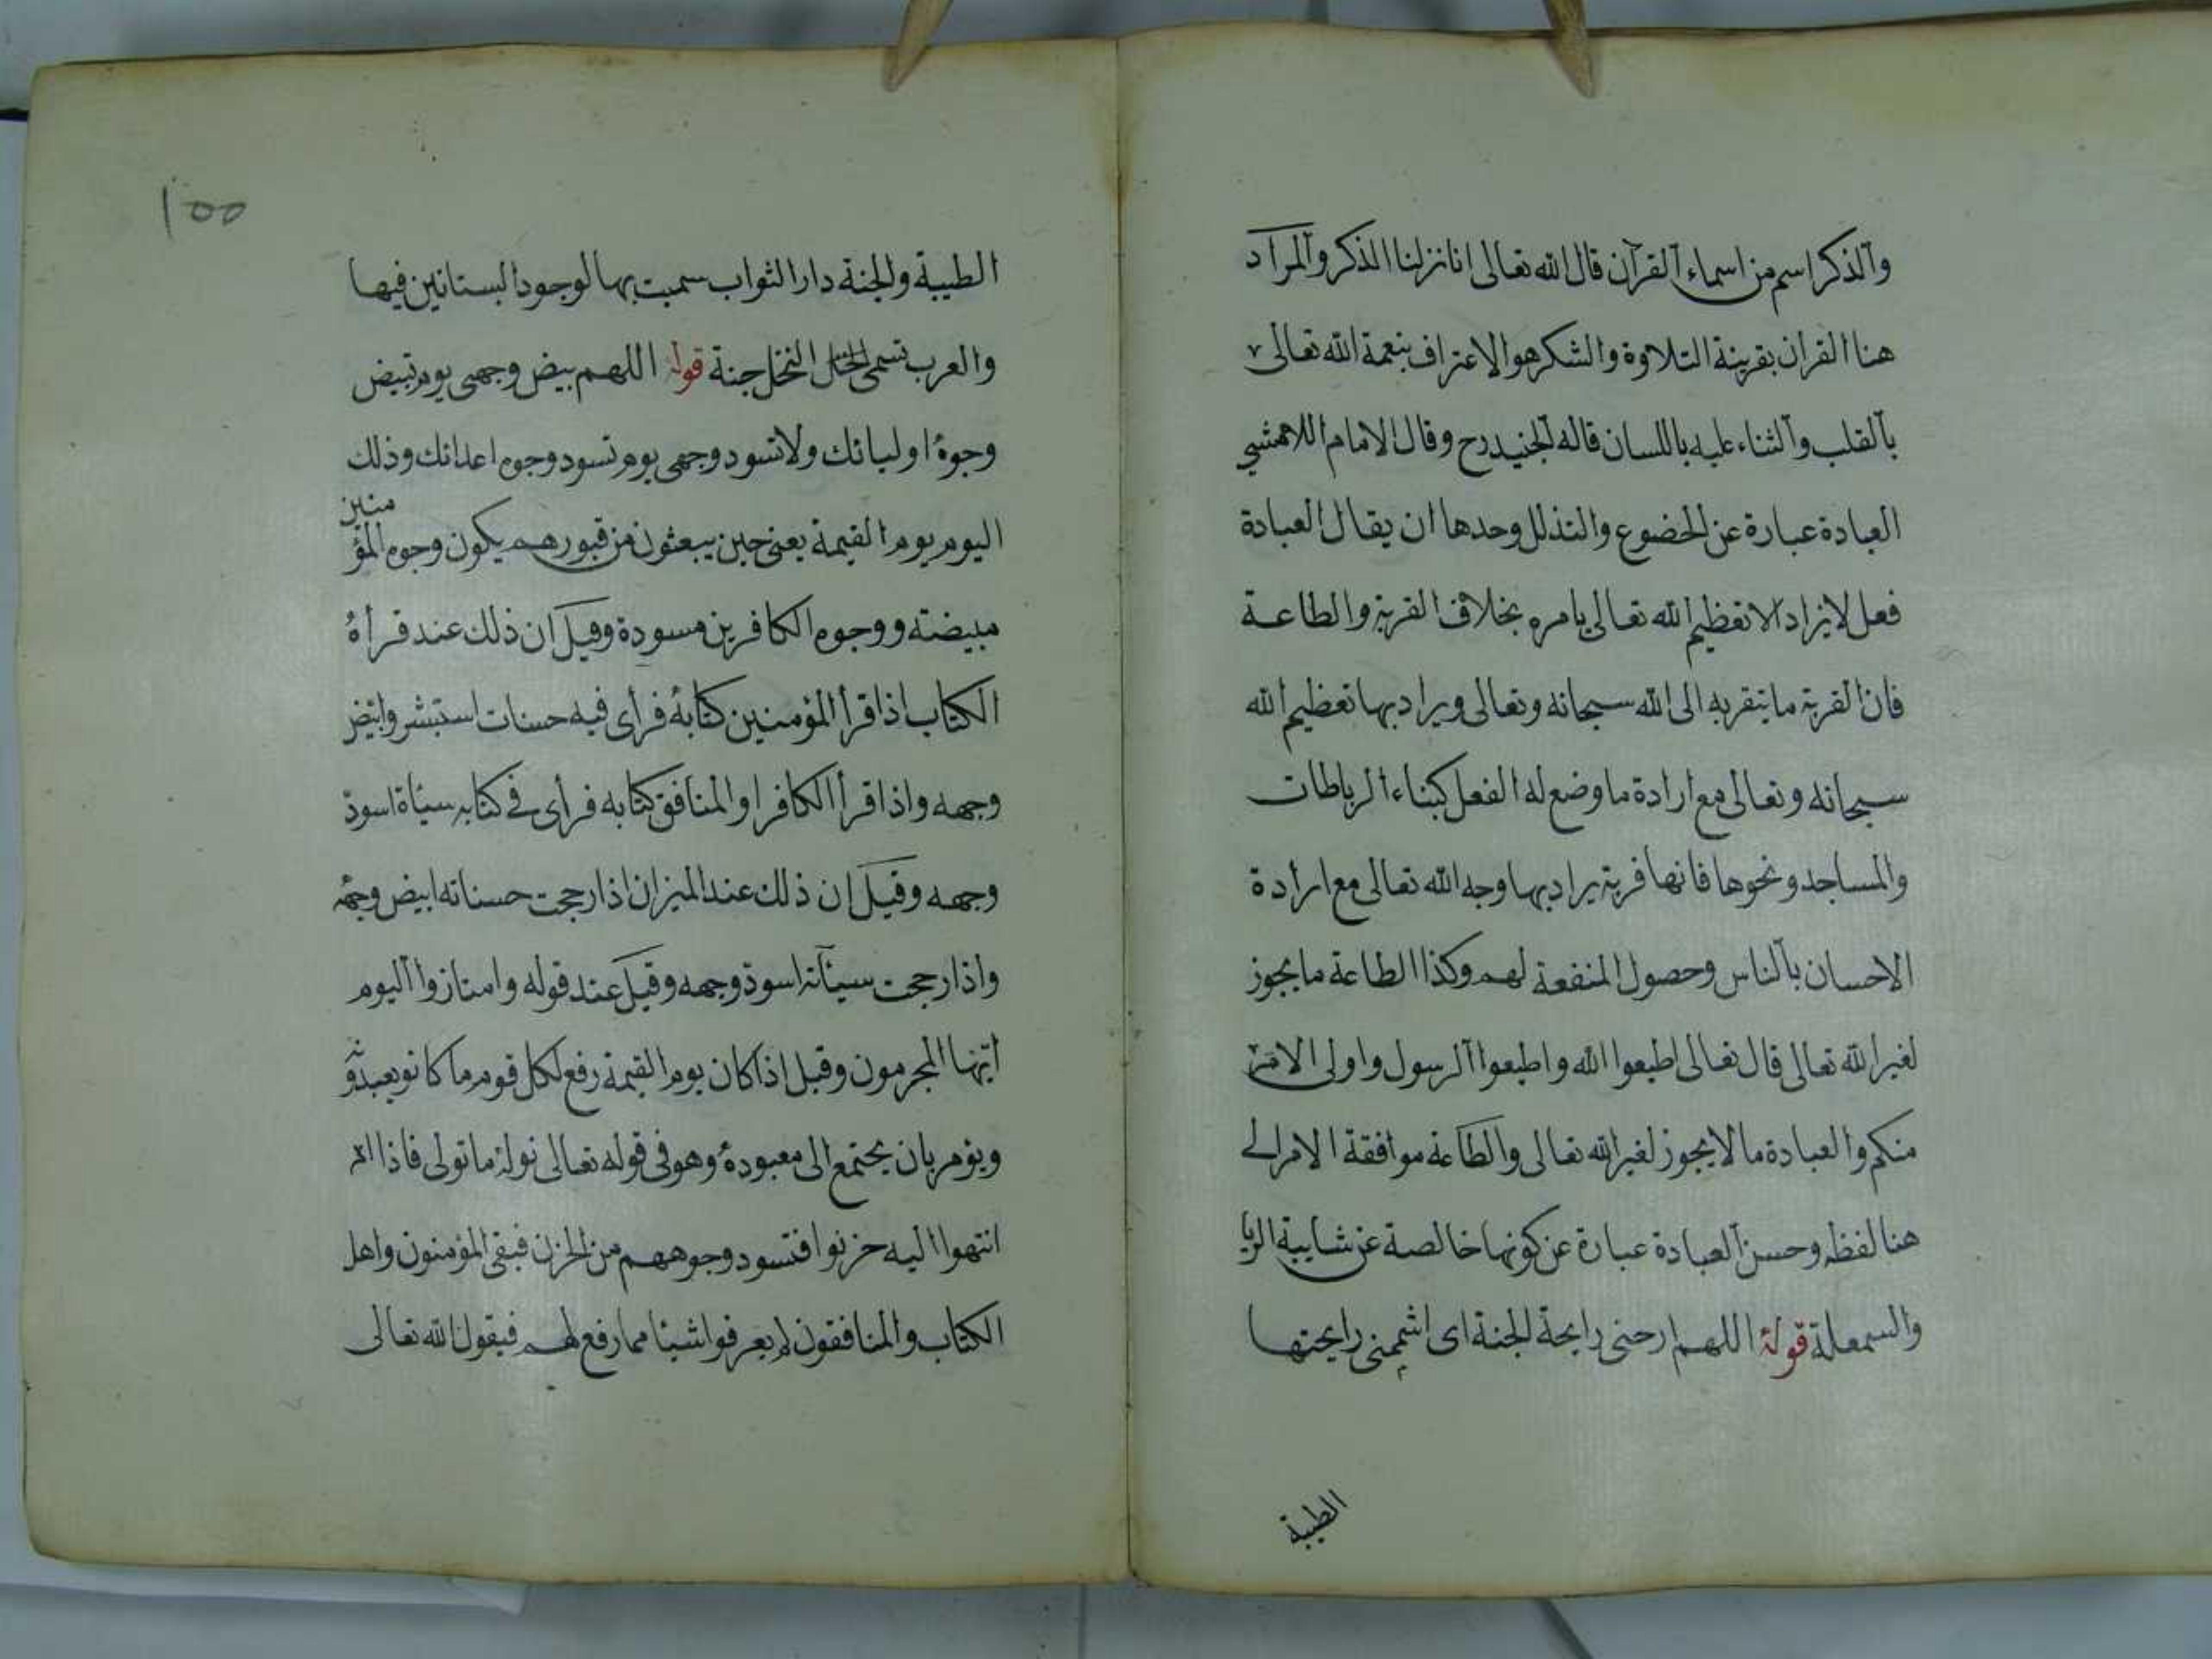 والذكر اسم من اسماء القرآن قال الله تعالى انا نزلنا الذكر والمراد
هنا القران بقرينة التلاوة والشكر هو الاعتراف بنعمة الله تعالى
بالقلب والثناء عليه باللسان قاله الجنيد رح وقال الامام اللامشي
العبادة عبارة عن الخضوع والتذلل وحدها ان يقال العبادة
فعل لا يراد الا تعظيم الله تعالى بامره بخلاف القربة والطاعة
فان القربة ما يتقرب به الى الله سبحانه وتعالى ويراد بها تعظيم الله
سبحانه وتعالى مع ارادة ما وضع له الفعل كبناء الرباطات
والمساجد ونحوها فانها قربة يراد بها وجه الله تعالى مع ارادة
الاحسان بالناس وحصول المنفعة لهم وكذا الطاعة ما يجوز
لغير الله تعالى قال تعالى اطيعوا الله واطيعوا الرسول واولى الامر
منكم والعبادة ما لا يجوز لغير الله تعالى والطاعة موافقة الامر الى
هنا لفظه وحسن العبادة عبارة عن كونها خالصة عن شايبة الريا
والسمعلة قوله اللهم ارحنى رايحة الجنة اى اشممنى رايحتها
الطيبة
١٥٥
الطيبة والجنة دار الثواب سميت بها لوجود البستانين فيها
والعرب تسمى النخل جنة قوله اللهم بيض وجهى يوم تبيض
وجوه اوليائك ولا تسود وجهى يوم تسود وجوه اعدائك وذلك
اليوم يوم القيمة يعنى حين يبعثون من قبورهم يكون وجوه المؤمنين
مبيضته ووجوه الكافرين مسودة وقيل ان ذلك عند قرأة
الكتاب اذا قرأ المؤمنين كتابه فرأى فيه حسنات استبشر وابيض
وجهه واذا قرأ الكافر او المنافق كتابه فرأى فى كتابه سيئاة اسود
وجهه وقيل ان ذلك عند الميزان اذا رجحت حسناته ابيض وجهه
واذا رجحت سيئآته اسود وجهه وقيل عند قوله وامتازوا اليوم
ايها المجرمون وقيل اذا كان يوم القيمة رفع لكل قوم ما كانو يعبدون
ويؤمر بان يجتمع الى معبوده وهو فى قوله تعالى نوله ما تولى فاذا
انتهوا اليه حزنوا فتسود وجوههم من الحزن فبقى المؤمنون واهل
الكتاب والمنافقون لم يعرفوا شيئا مما رفع لهم فيقول الله تعالى